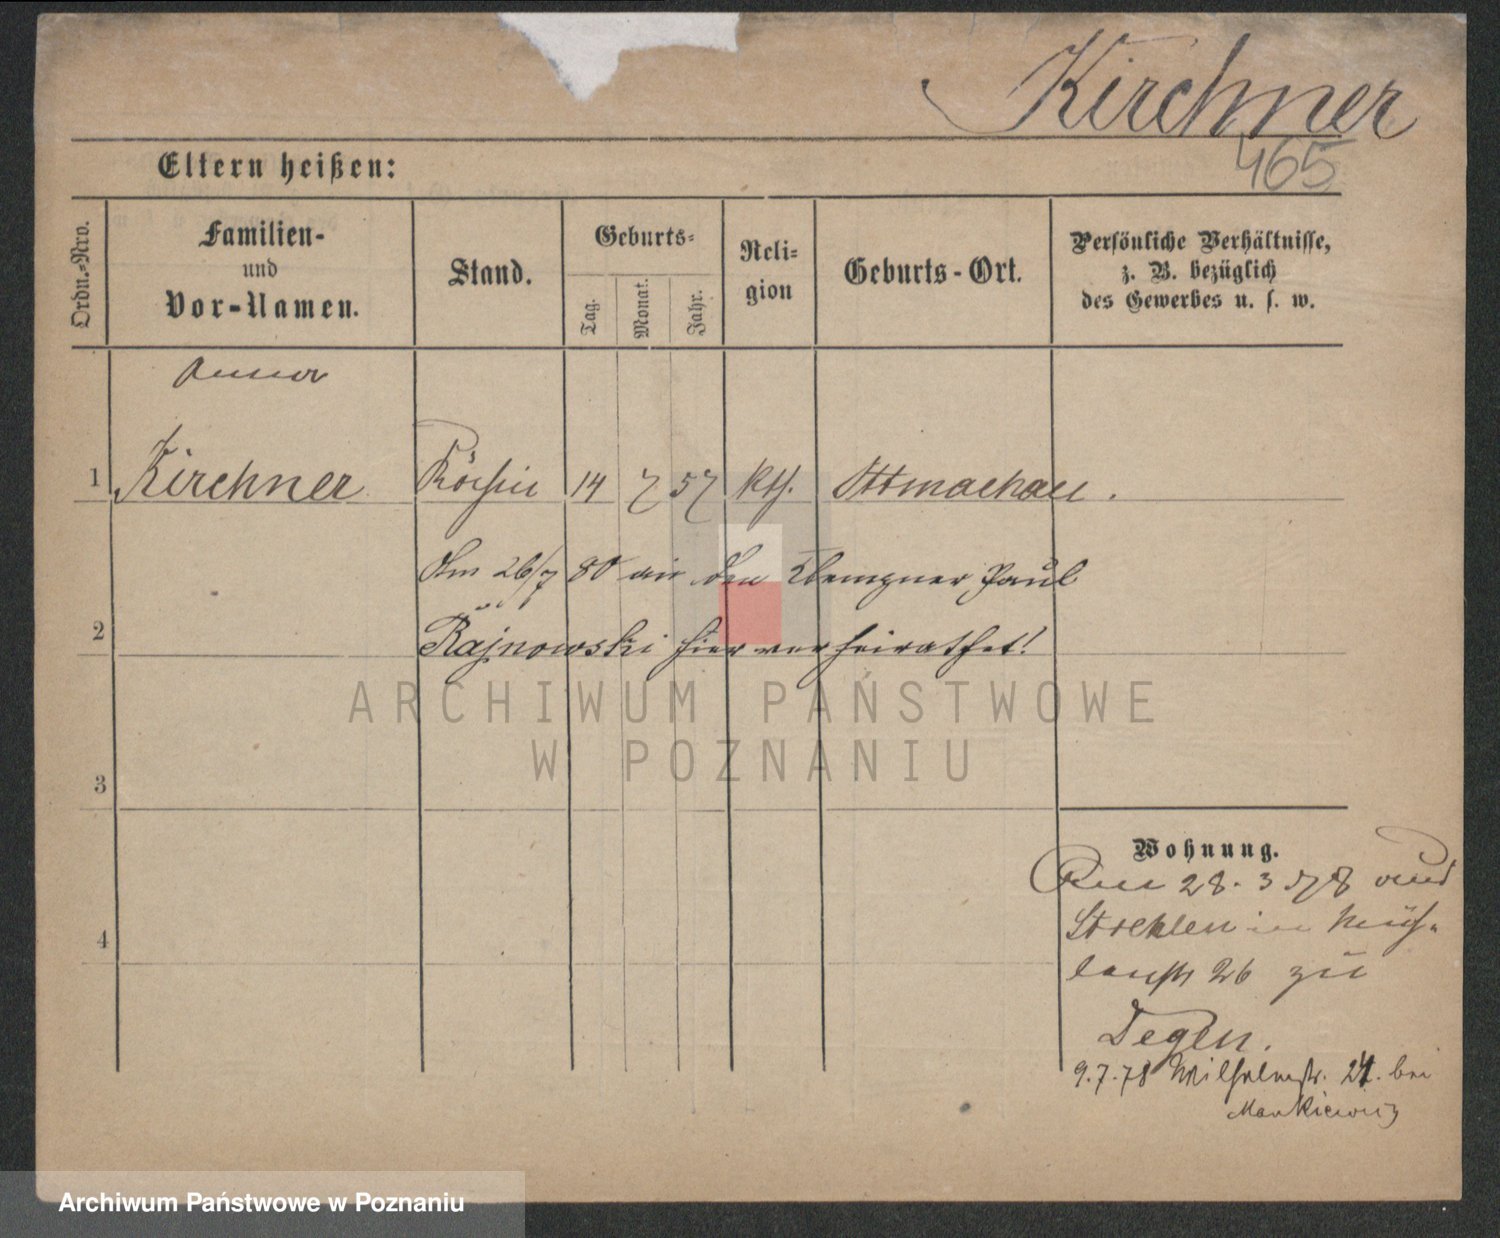 Kirchner
465
Eltern heißen:
Ordn.-Nro.
Familien-
und
Vor-Namen.
Stand.
Geburts-
Tag.
Monat.
Jahr.
Reli-
gion
Geburts-Ort.
Persönliche Verhältnisse,
z. B. bezüglich
des Gewerbes u. s. w.
Anna
1 Kirchner Köchin 14 7 57 kth. Ottmachau.
Am 26/7 80 an den Klempner Paul
2 Rajnowski hier verheirathet!
ARCHIWUM PAŃSTWOWE
W POZNANIU
3
Wohnung.
28. 3 78
4 Strehlen in Müh-
lenstr 26 zu
Degen.
9.7.78 Wilhelmstr. 24. bei
Mankiewicz
Archiwum Państwowe w Poznaniu